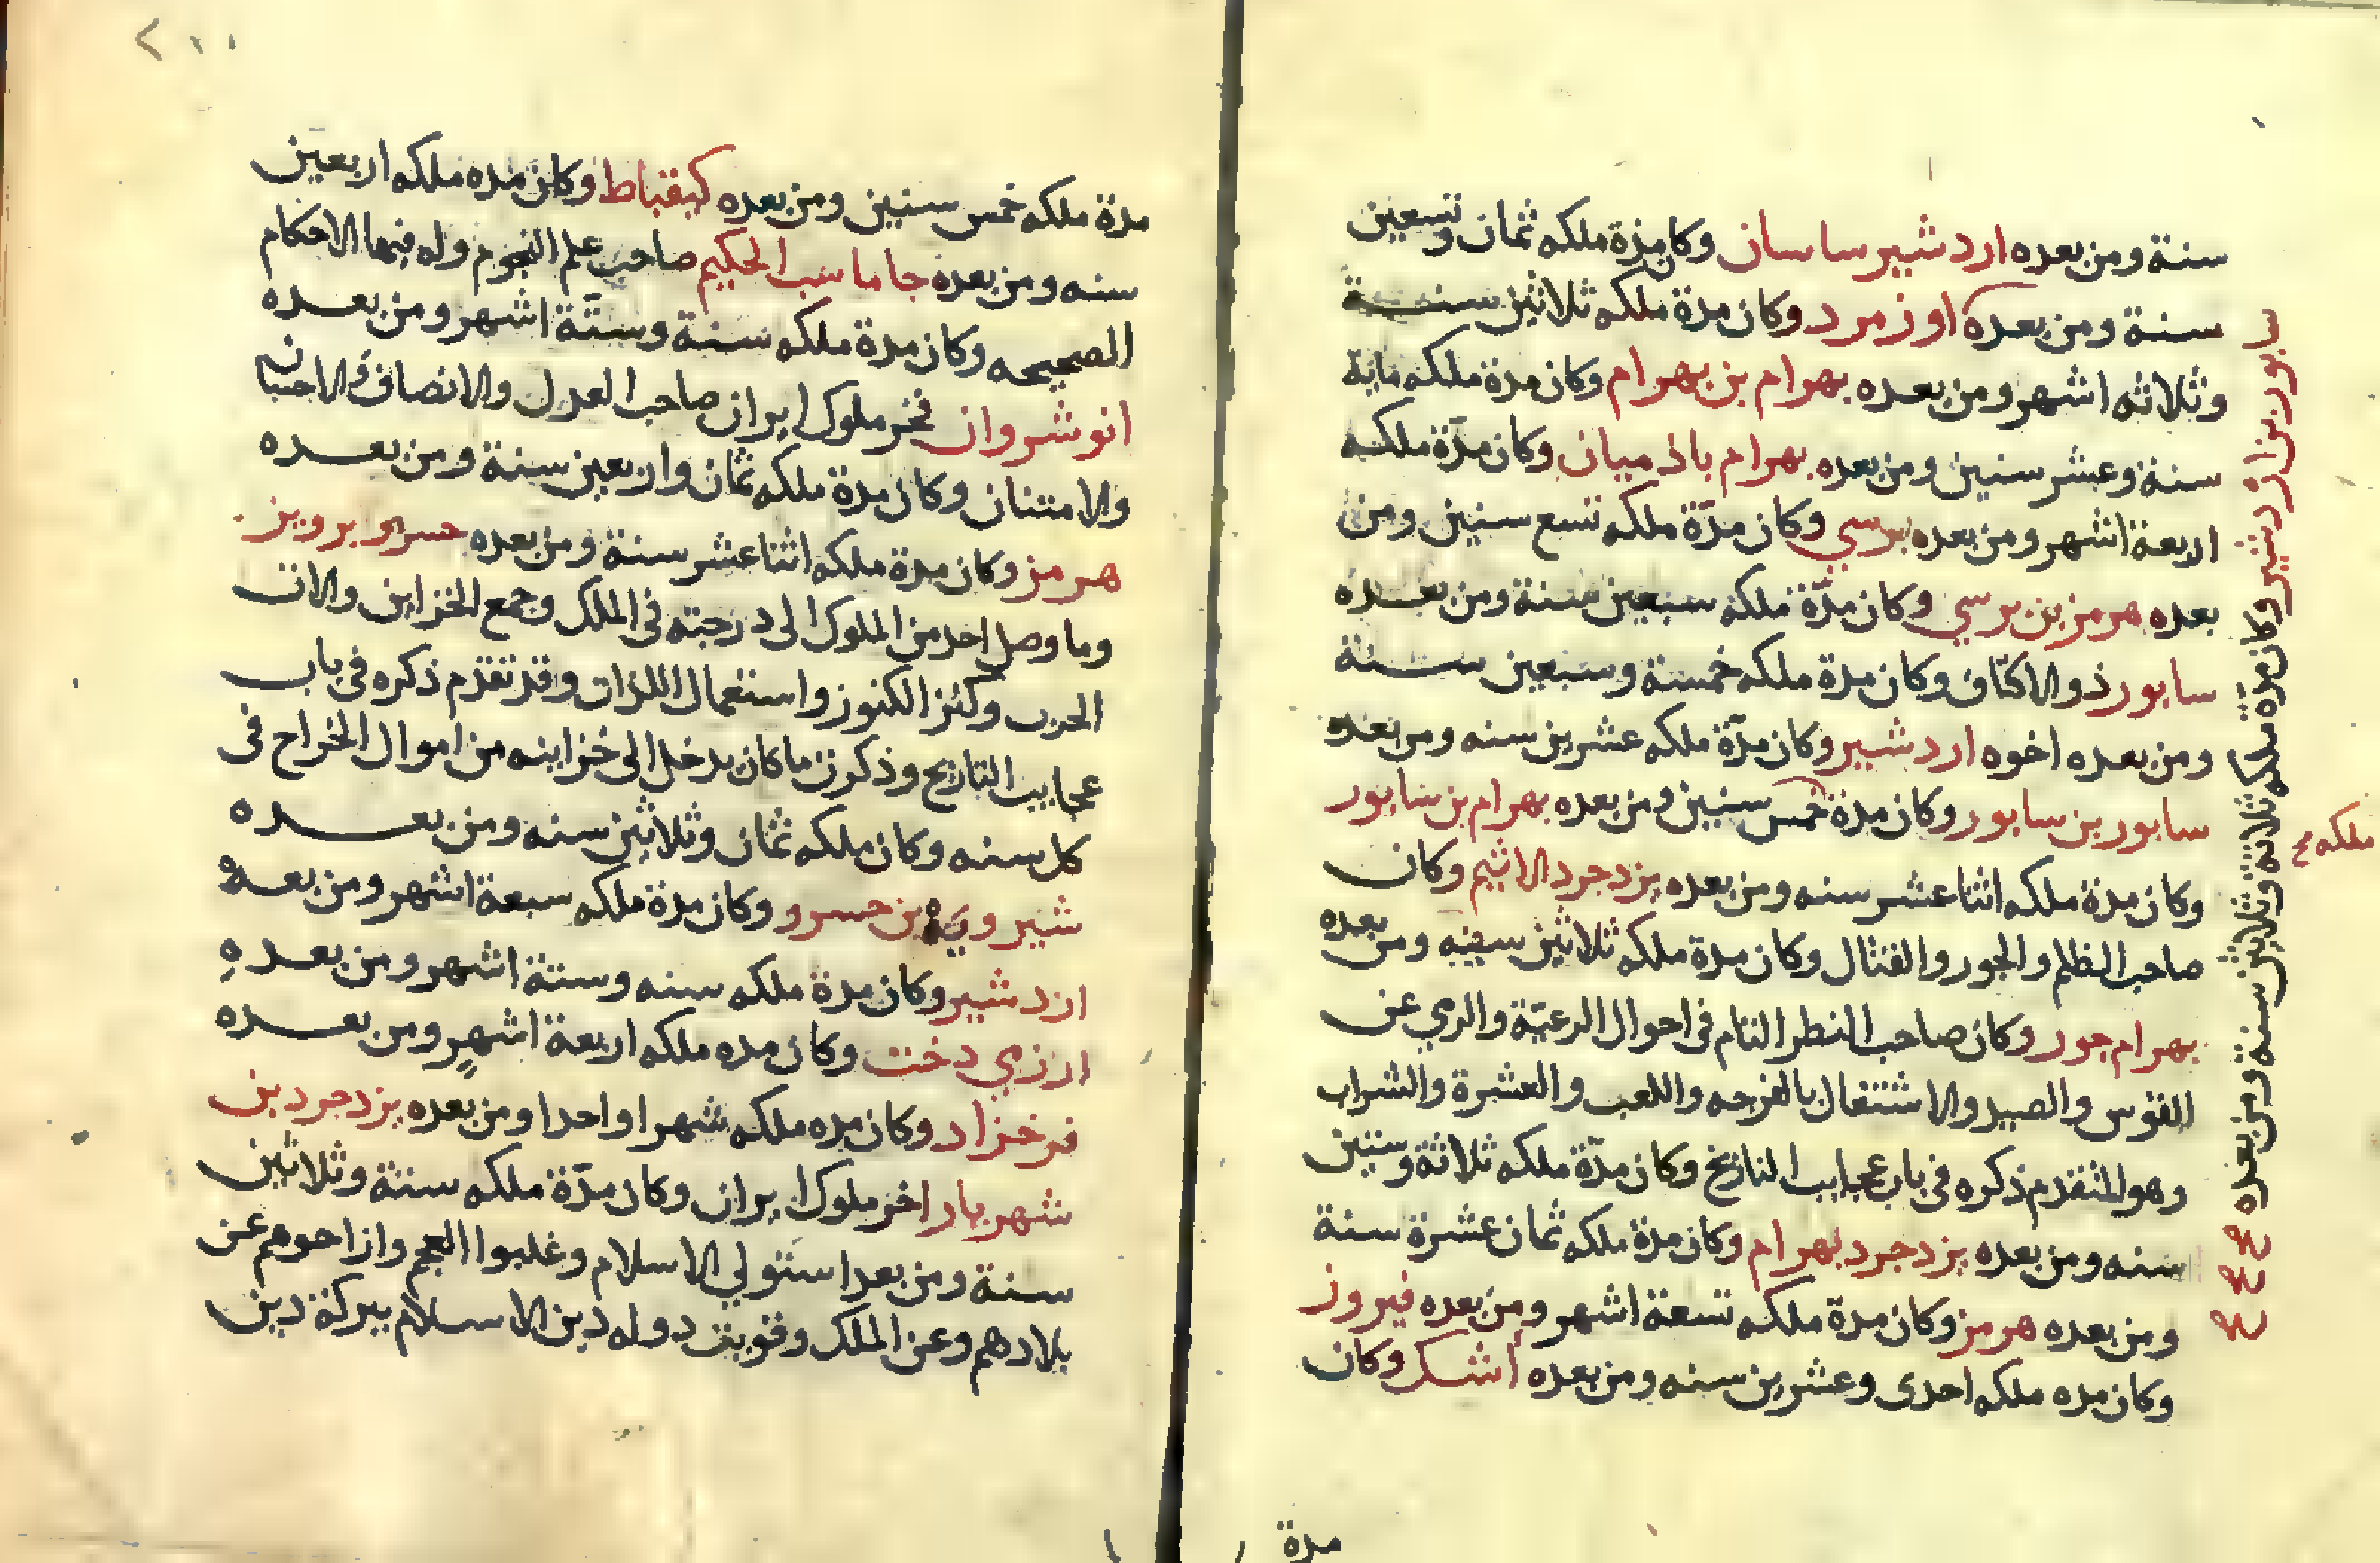 سنة ومن بعده اردشير ساسان وكان مدة ملكه ثمان وتسعين
سنة ومن بعده اوزمرد وكان مدة ملكه ثلاثين سنة
وثلاثه اشهر ومن بعده بهرام بن بهرام وكان مدة ملكه ماية
سنة وعشر سنين ومن بعده بهرام بالد ميان وكان مدّة ملكه
اربعة اشهر ومن بعده برسي وكان مدّة ملكه تسع سنين ومن
بعده هرمز بن برسي وكان مدّة ملكه سبعين سنة ومن بعده
سابور ذو الاكتاف وكان مدة ملكه خمسة وسبعين سنة
ومن بعده اخوه اردشير وكان مدّة ملكه عشرين سنه ومن بعده
سابور بن سابور وكان مدة خمس سنين ومن بعده بهرام بن سابور
وكان مدة ملكه اثنا عشر سنه ومن بعده يزدجرد الاثيم وكان
صاحب الظلم والجور والقتال وكان مدة ملكه ثلاثين سنه ومن بعده
بهرام جور وكان صاحب النظر التام في احوال الرعيّة والرمي عن
القوس والصيد والاشتغال بالفرجه واللعب والعشرة والشراب
وهو المتقدم ذكره في باب عجايب التاريخ وكان مدّة ملكه ثلاثة وستين
سنه ومن بعده يزدجرد بهرام وكان مدة ملكه ثمان عشرة سنة
ومن بعده هرمز وكان مدة ملكه تسعة اشهر ومن بعده فيروز
وكان مده ملكه احدى وعشرين سنه ومن بعده أشك وكان
مدة
سابور بن اردشير وكان مدة ملكه ثلاثة وثلاثين سنة ومن بعده صح صح صح
ملكه
مدة ملكه خمس سنين ومن بعده كيقباط وكان مده ملكه اربعين
سنه ومن بعده جاماسب الحكيم صاحب علم النجوم وله فيها الاحكام
الصحيحه وكان مدة ملكه سنة وستّة اشهر ومن بعده
انوشروان فخر ملوك ايران صاحب العدل والانصاف والاحسان
والامتنان وكان مدة ملكه ثمان واربعين سنة ومن بعده
هرمز وكان مدة ملكه اثنا عشر سنة ومن بعده خسرو برويز
وما وصل احد من الملوك الى درجته في الملك وجمع الخزاين والات
الحرب وكنز الكنوز واستعمال اللذات وقد تقدم ذكره في باب
عجايب التاريخ وذكرت ما كان يدخل الى خزاينه من اموال الخراج في
كل سنه وكان ملكه ثمان وثلاثين سنه ومن بعده
شيرويه بن خسرو وكان مدة ملكه سبعة اشهر ومن بعده
اردشير وكان مدة ملكه سنه وستة اشهر ومن بعده
ارزمي دخت وكان مده ملكه اربعة اشهر ومن بعده
فرخزاد وكان مده ملكه شهرا واحدا ومن بعده يزدجرد بن
شهريار اخر ملوك ايران وكان مدّة ملكه ستة وثلاثين
سنة ومن بعد استولي الاسلام وغلبوا العجم وازاحوهم عن
بلادهم وعن الملك وقويت دوله دين الاسلام ببركة دين